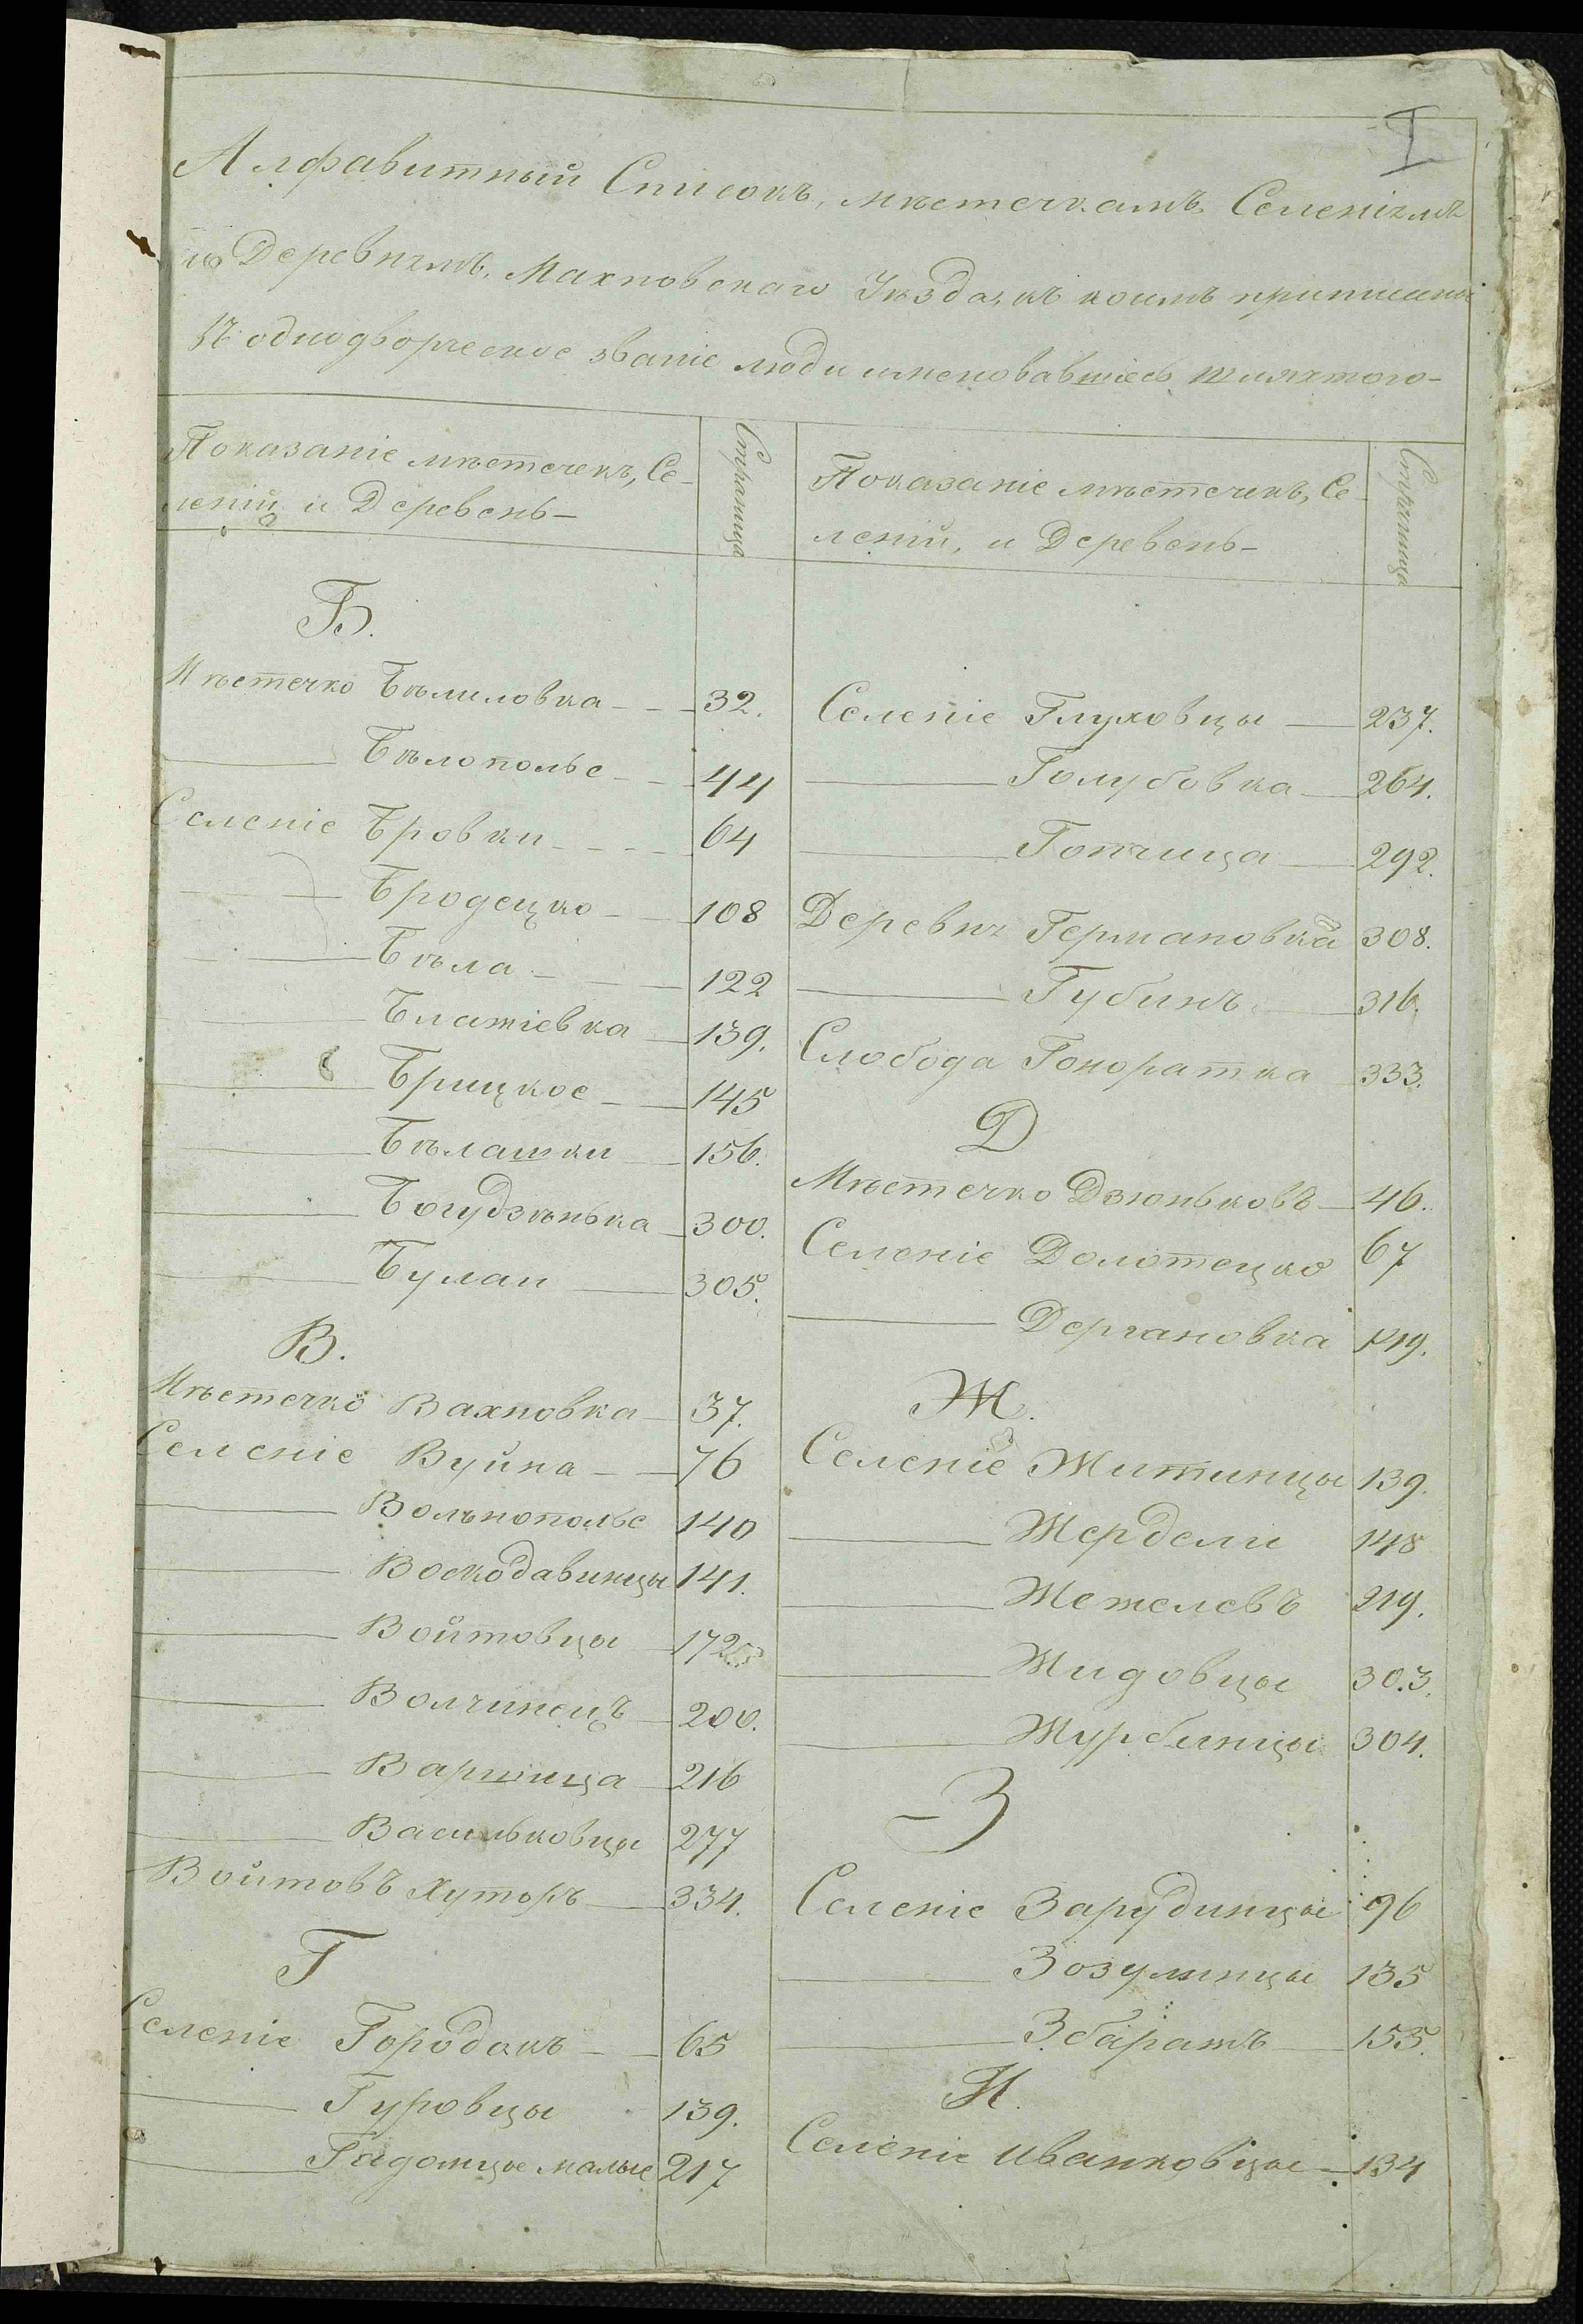 I
Алфавитный Списокъ, мѣстечкамъ Селеніямъ
и Деревнямъ, Махновскаго Уѣзда, къ коимъ приписаны
въ однодворческое званіе люди именовавшіесь шляхтою-
Показаніе мѣстечекъ, Се-
леній и Деревень-
Страница
Б.
Мѣстечко Бѣлиловка - - - 32.
Бѣлополье - - 44
Селеніе Бровки - - - - 64
Бродецко - - 108
Бѣла - - - 122
Блажіевка - 139.
Брицкое - - 145
Бѣлашки - 156.
Богудзѣнька - 300.
Булаи - 305.
В.
Мѣстечко Вахновка - 37.
Селеніе Вуйна - - 76
Вольнополье 140
Воскодавинцы 141.
Войтовцы - 172
Волчинецъ - 200.
Варшица - 216
Васильковцы 277
Войтовъ Хуторъ - 334.
Г
Селеніе Городокъ - - 65
Гуровцы 139.
Гадомцы малые 217
Показаніе мѣстечекъ, Се-
леній, и Деревень-
Страница
Селеніе Глуховцы - 237.
Голубовка - 264.
Гопчица - 292.
Деревня Германовка 308.
Губинъ - 316.
Слобода Гоноратка 333.
Д
Мѣстечко Дзюньковъ - 46.
Селеніе Долотецко 67
Дергановка 149.
Ж.
Селеніе Житинцы 139.
Жердели 148
Жежелевъ 219.
Жидовцы 303.
Журбинцы 304.
З
Селеніе Зарудинцы 96
Зозулинцы 135
Збаражъ - 155.
И.
Селеніе Иванковцы - 134